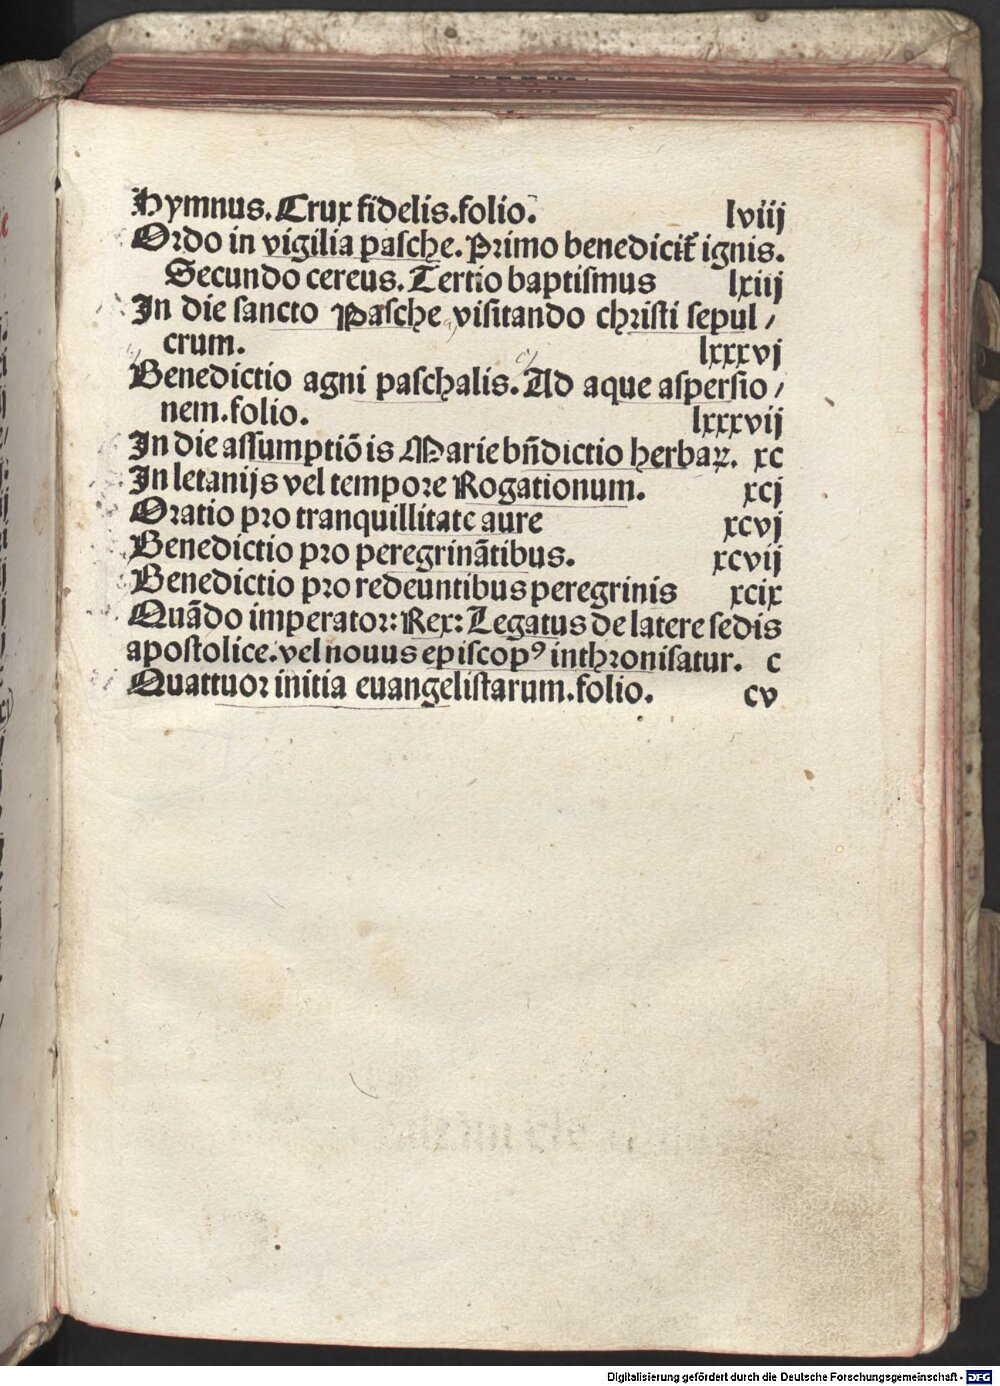 Hymnus. Crux fidelis.folio. lviij
Ordo in vigilia pasche. Primo benedicit͛ ignis.
Secundo cereus. Tertio baptismus lxiij
In die sancto Pasche visitando christi sepul/
crum. lxxxvj
Benedictio agni paschalis. Ad aque aspersio/
nem.folio. lxxxvij
In die assumptiōis Marie bn̄dictio herbaꝝ. xc
In letanijs vel tempore Rogationum. xcj
Oratio pro tranquillitate aure xcvj
Benedictio pro peregrinātibus. xcvij
Benedictio pro redeuntibus peregrinis xcix
Quādo imperator: Rex: Legatus de latere sedis
apostolice.vel nouus episcopꝰ inthronisatur. c
Quattuor initia euangelistarum.folio. cv
Digitalisierung gefördert durch die Deutsche Forschungsgemeinschaft - DFG